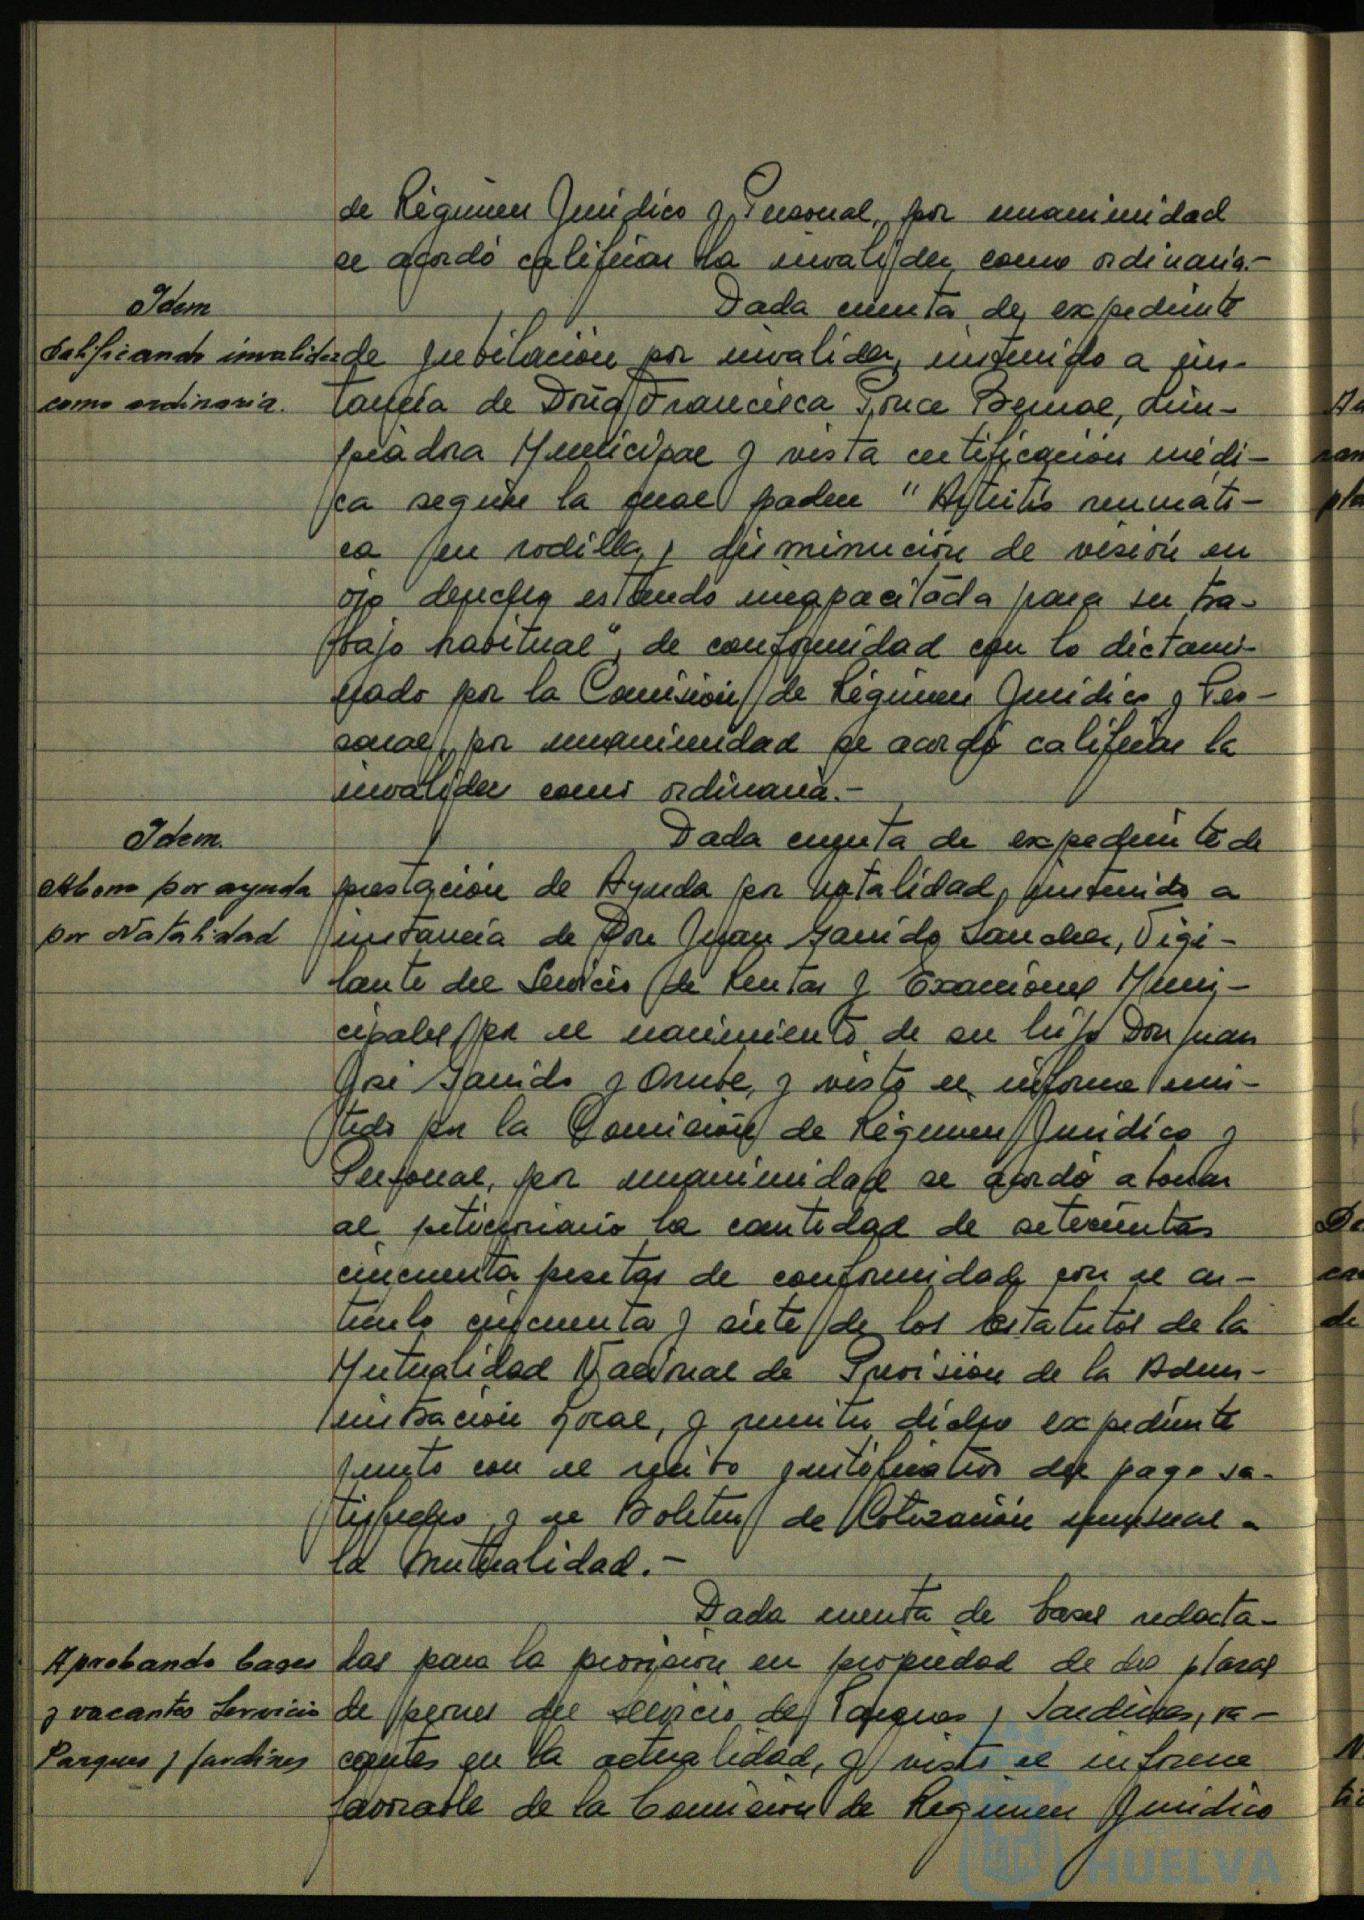 de Régimen Jurídico y Personal, por unanimidad
se acordó calificar la invalidez como ordinaria.-
Idem
Calificando invalidez
como ordinaria.
Dada cuenta de expediente
de jubilación por invalidez, instruido a ins-
tancia de Doña Francisca Ponce Bernal, Lim-
piadora Municipal y vista certificación médi-
ca según la cual padece "Artritis reumáti-
ca en rodilla y disminución de visión en
ojo derecho estando incapacitada para su tra-
bajo habitual", de conformidad con lo dictami-
nado por la Comisión de Régimen Jurídico y Per-
sonal, por unanimidad se acordó calificar la
invalidez como ordinaria.-
Idem.
Abono por ayuda
por Natalidad
Dada cuenta de expediente de
prestación de Ayuda por Natalidad, instruido a
instancia de Don Juan Garrido Sanchez, Vigi-
lante del Servicio de Rentas y Exacciones Muni-
cipales, por el nacimiento de su hijo Don Juan
José Garrido y , y visto el informe emi-
tido por la Comisión de Régimen Jurídico y
Personal, por unanimidad se acordó abonar
al peticionario la cantidad de setecientas
cincuenta pesetas de conformidad con el ar-
tículo cincuenta y siete de los Estatutos de la
Mutualidad Nacional de Previsión de la Admi-
nistración Local, y remitir dicho expediente
junto con el recibo justificativo del pago sa-
tisfecho y el Boletín de Cotización mensual a
la Mutualidad.-
Aprobando bases
y vacantes Servicio
Parques y Jardines
Dada cuenta de bases redacta-
das para la provisión en propiedad de dos plazas
de peones del servicio de Parques y Jardines, va-
cantes en la actualidad, y visto el informe
favorable de la Comisión de Régimen Jurídico
HUELVA